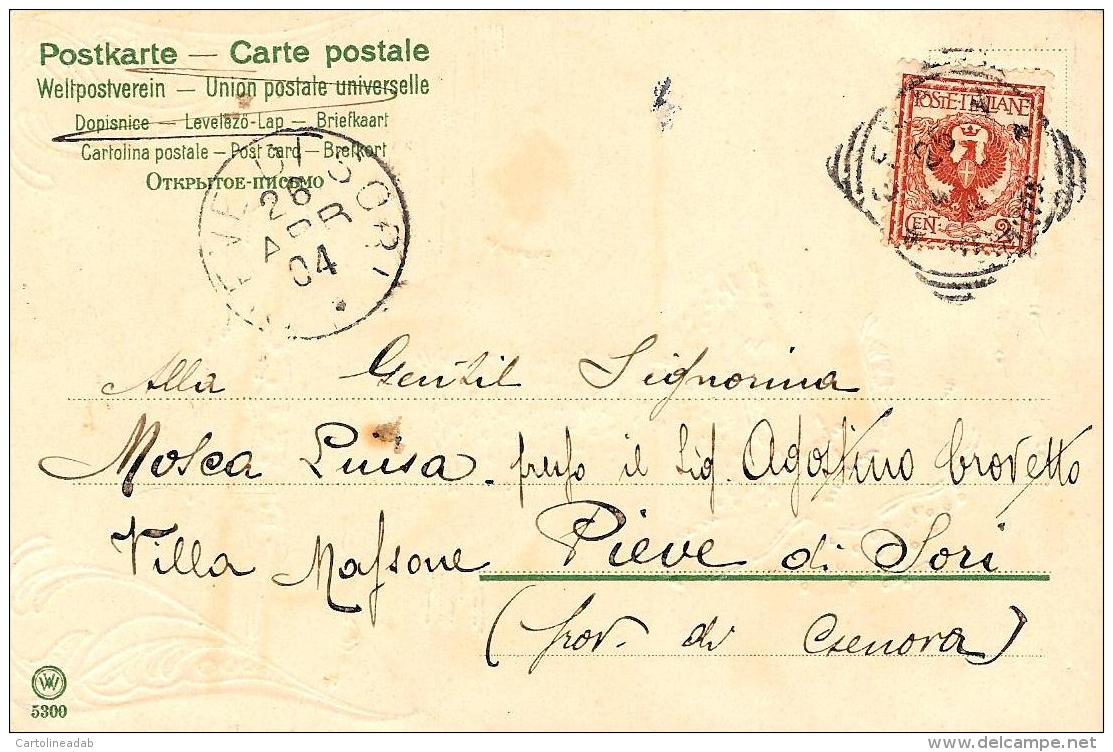 Postkarte — Carte postale
Weltpostverein — Union postale universelle
Dopisnice — Levelező-Lap — Briefkaart
Cartolina postale — Post card — Brefkort
Открытое-письмо
POSTE·ITALIANE
CEN: 2
PIEVE DI SORI
26
APR
04
Alla Gentil Signorina
Mosca Luisa presso il Sig. Agostino Crovetto
Villa Massone Pieve di Sori
(prov. di Genova)
5300
Cartolineadab
delcampe.net